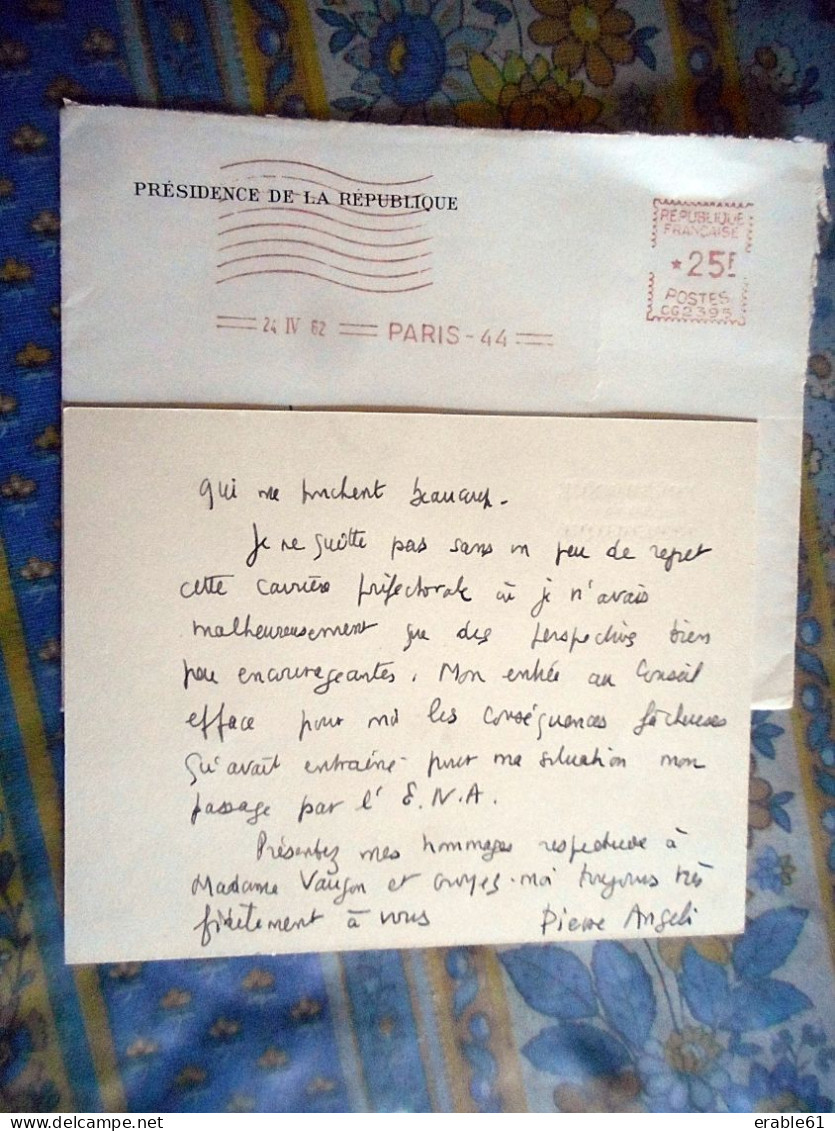 PRÉSIDENCE DE LA RÉPUBLIQUE
RÉPUBLIQUE
FRANÇAISE
* 25F
POSTES
CG2395
24 IV 62 PARIS - 44
qui me touchent beaucoup.
Je ne quitte pas sans un peu de regret
cette carrière préfectorale où je n'avais
malheureusement que des perspectives bien
peu encourageantes. Mon entrée au Conseil
efface pour moi les conséquences fâcheuses
qu'avait entraîné pour ma situation mon
passage par l'E.N.A.
Présentez mes hommages respectueux à
Madame Vaugon et croyez-moi toujours très
fidèlement à vous Pierre Angeli
delcampe.net
erable61